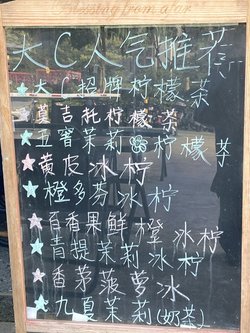 Blessing from afar
大C人气推荐
★大C招牌柠檬茶
★莫吉托柠檬茶
★五窨茉莉柠檬茶
★黄皮冰柠
★橙多芬冰柠
★百香果鲜橙冰柠
★青提茉莉冰柠
★香茅菠萝冰
★九夏茉莉(奶茶)